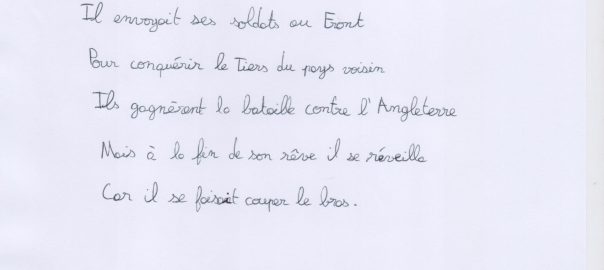 Il envoyait ses soldats au Front
Pour conquérir le Tiers du pays voisin
Ils gagnèrent la bataille contre l'Angleterre
Mais à la fin de son rêve il se réveilla
Car il se faisait couper le bras.